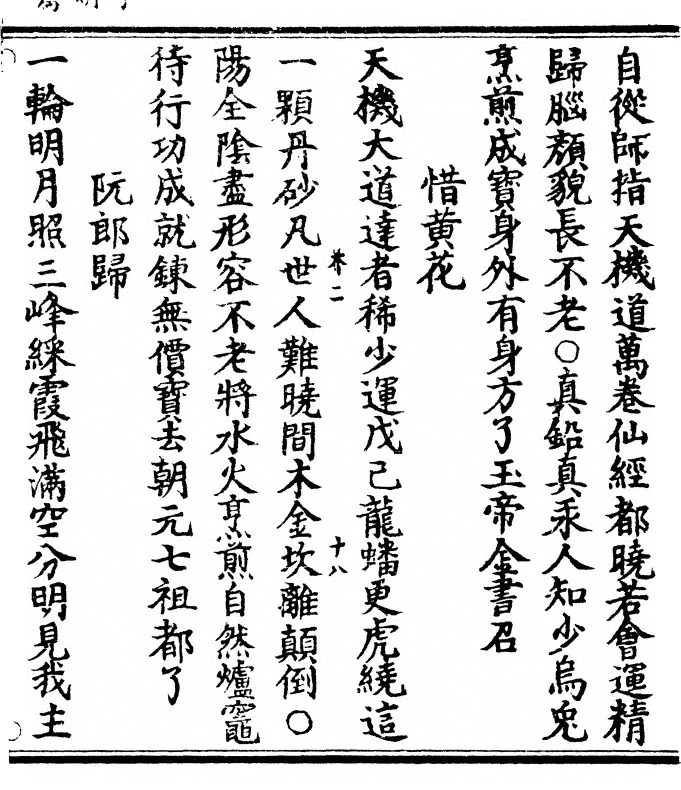 自從師指天機道萬卷仙經都曉若會運精
歸腦顏貌長不老○真鉛真汞人知少烏兎
烹煎成寶身外有身方了玉帝金書召
惜黄花
天機大道達者稀少運戊己龍蟠更虎繞這
卷二
十八
一顆丹砂凡世人難曉間木金坎離顛倒○
陽全陰盡形容不老將水火烹煎自然爐竈
待行功成就鍊無價寶去朝元七祖都了
阮郎歸
一輪明月照三峰綵霞飛滿空分明見我主